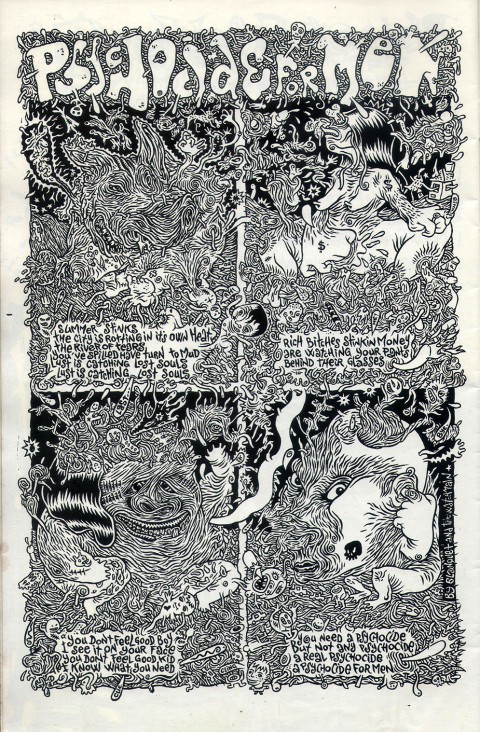 PSYCHOCIDE FOR MEN
SUMMER STINKS
THE CITY IS ROTTING IN IT'S OWN HEAT
THE RIVER OF TEARS
YOU'VE SPILLED HAVE TURN TO MUD
LUST IS CATCHING LOST SOULS
LUST IS CATCHING LOST SOULS
$
RICH BITCHES STINKIN MONEY
ARE WATCHING YOUR PANTS
BEHIND THEIR GLASSES
"YOU DON'T FEEL GOOD BOY
I SEE IT ON YOUR FACE
YOU DON'T FEEL GOOD KID
I KNOW WHAT YOU NEED
YOU NEED A PSYCHOCIDE
BUT NOT ANY PSYCHOCIDE
A REAL PSYCHOCIDE
A PSYCHOCIDE FOR MEN